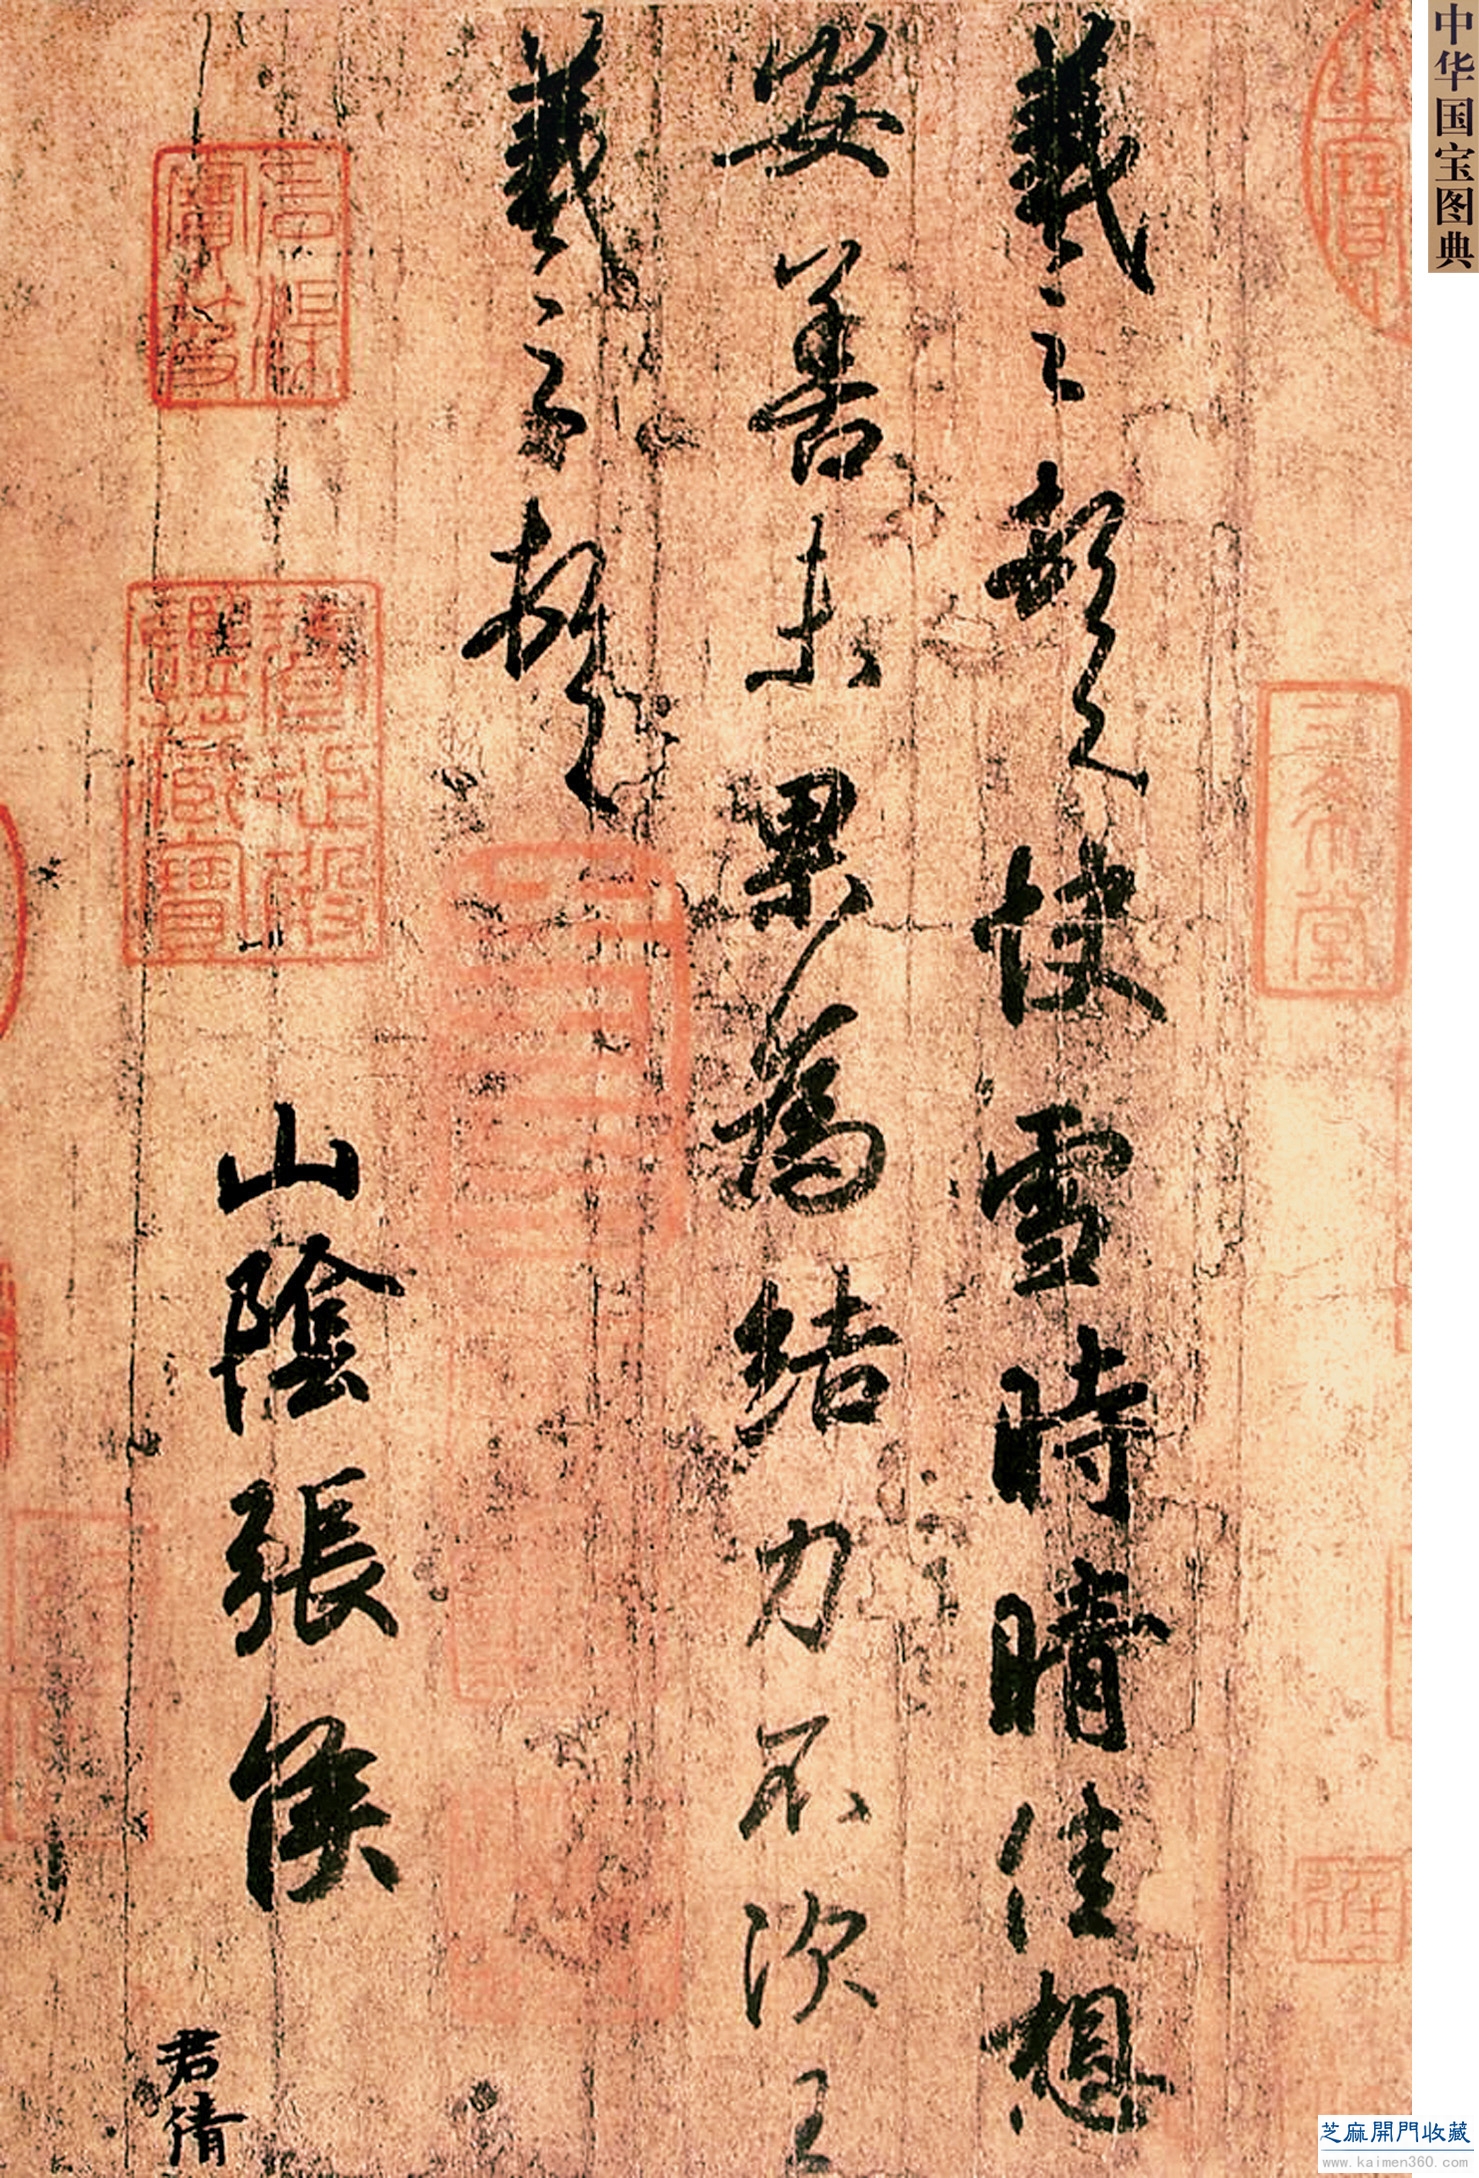 中华国宝图典
三希堂
羲之頓首快雪時晴佳想
安善未果為結力不次王
羲之頓首
山陰張侯
君倩
石渠
寶笈
養心殿
鑑藏寶
芝麻開門收藏
www.kaimen360.com